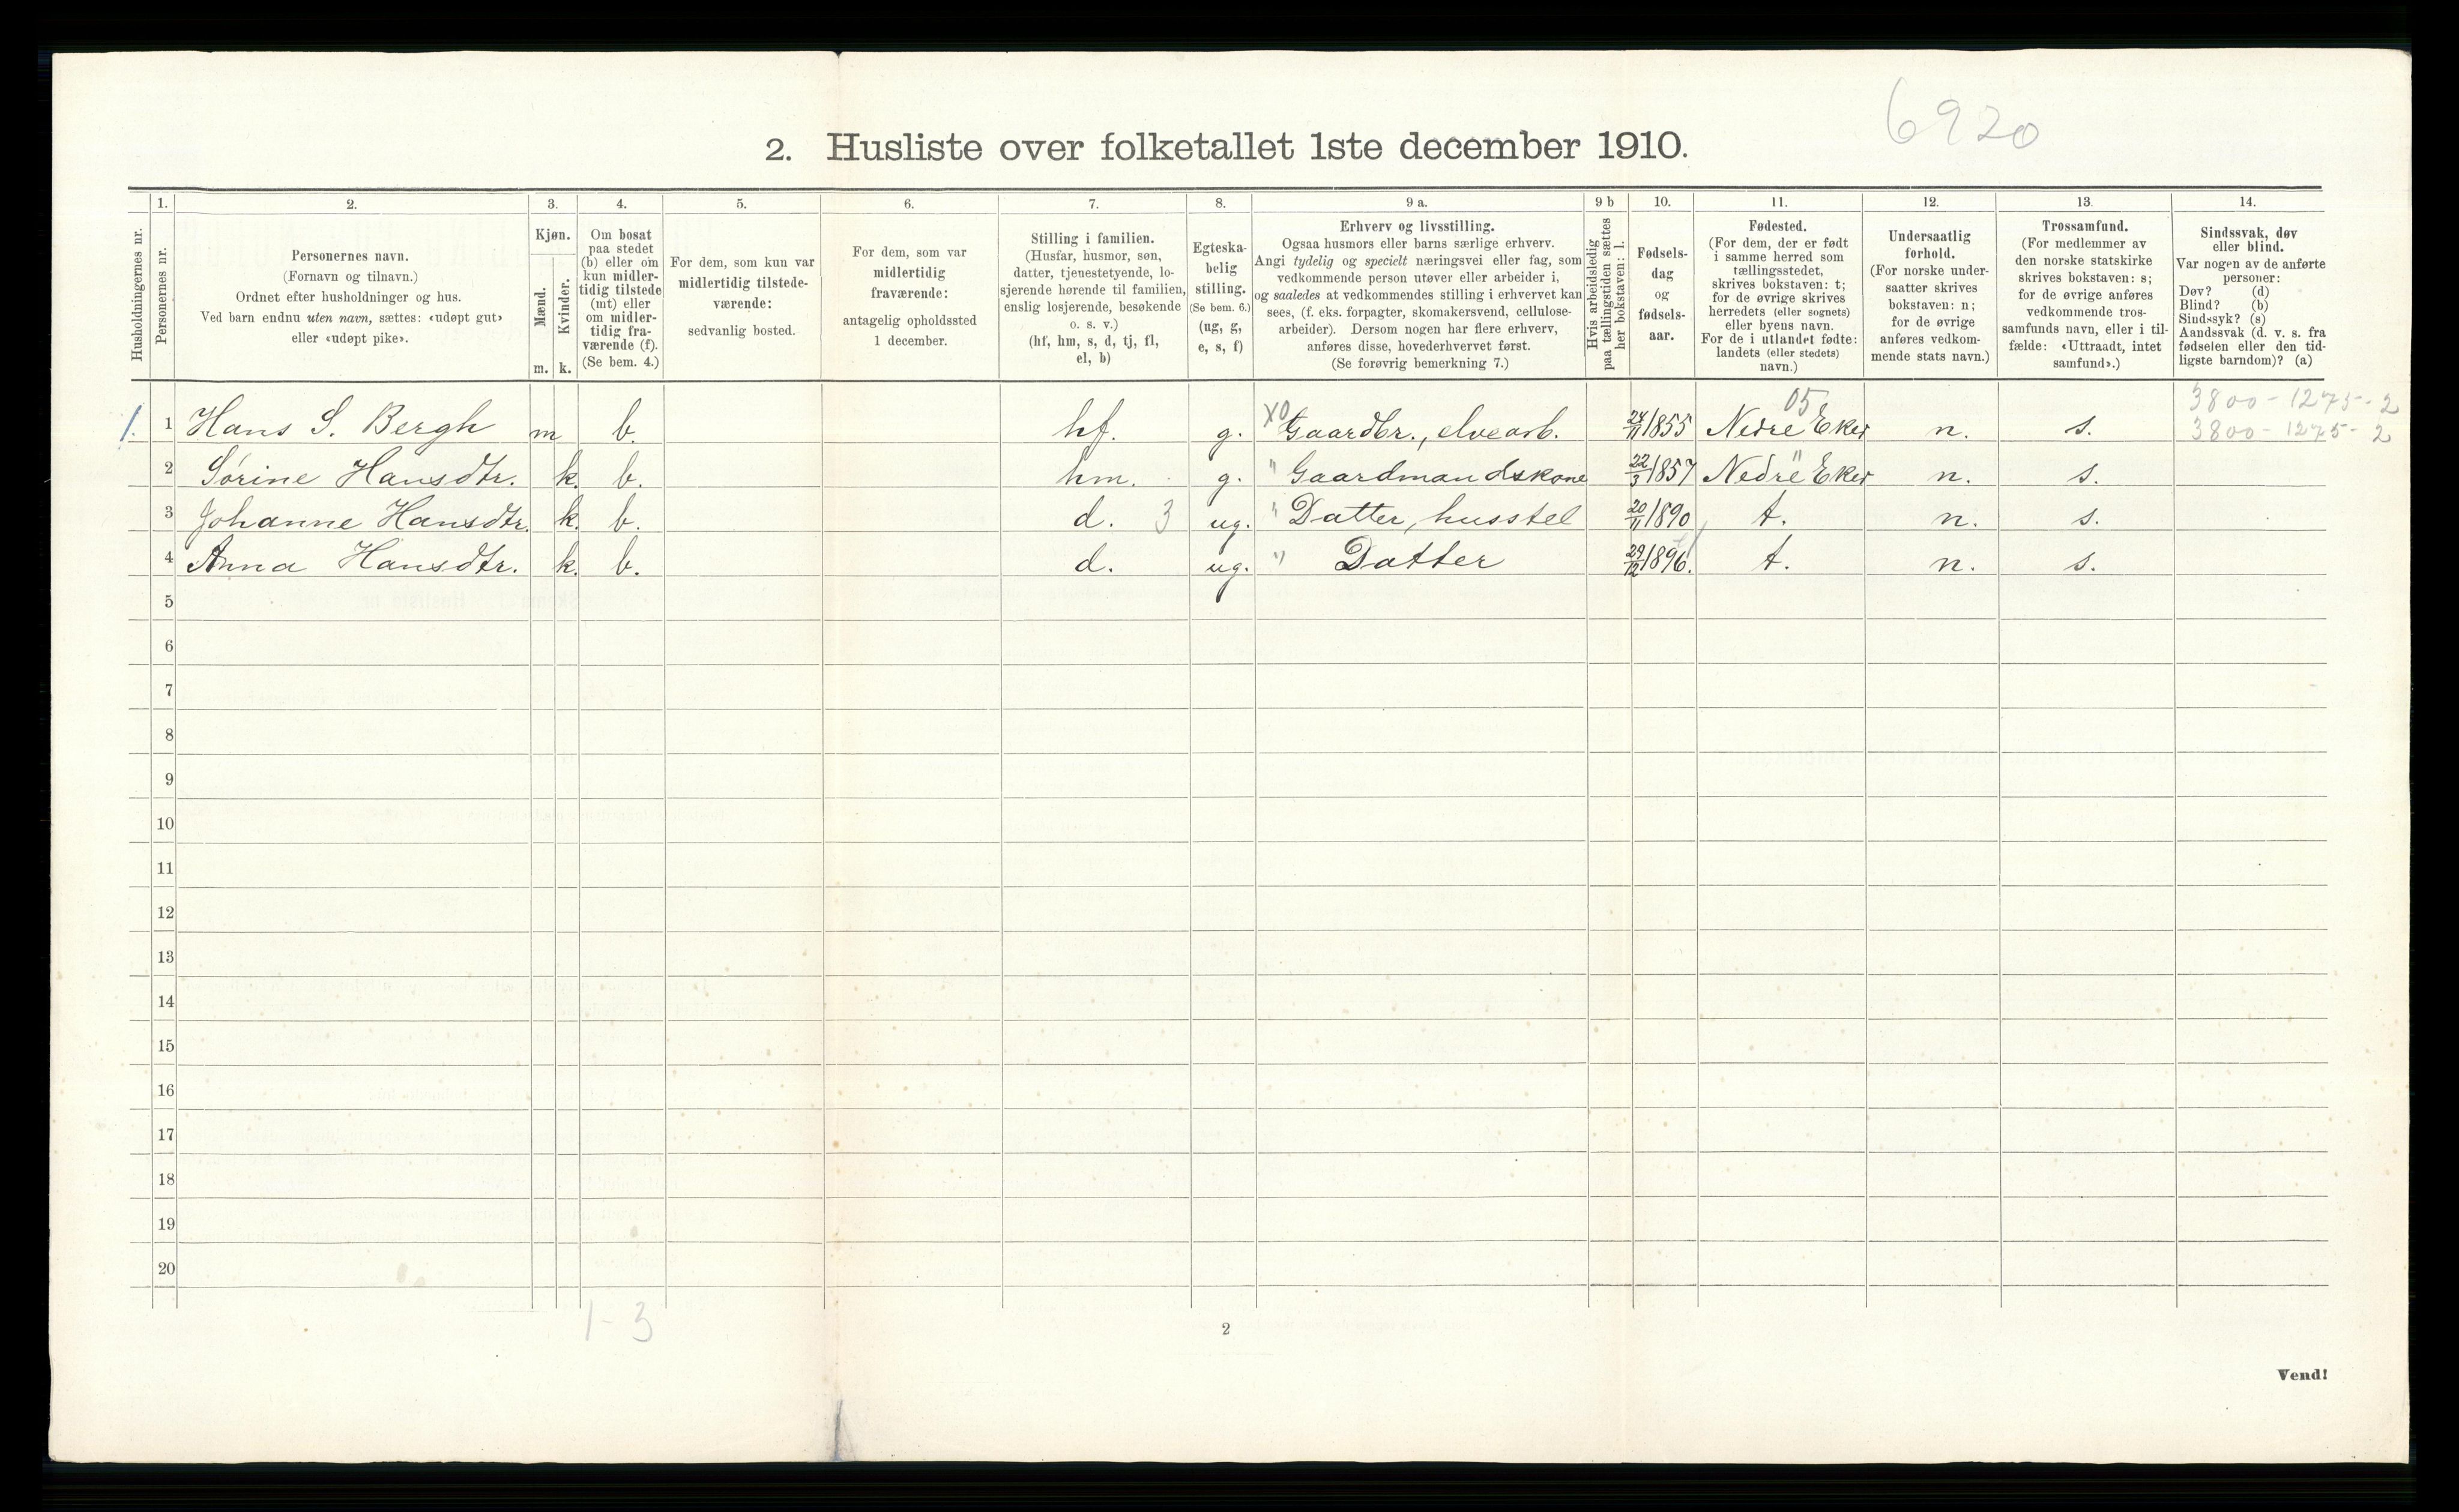 6920
2. Husliste over folketallet 1ste december 1910.
Husholdningernes nr.
1.
Personernes nr.
2.
Personernes navn.
(Fornavn og tilnavn.)
Ordnet efter husholdninger og hus.
Ved barn endnu uten navn, sættes: «udøpt gut»
eller «udøpt pike».
3.
Kjøn.
Mænd.
Kvinder.
m. k.
4.
Om bosat
paa stedet
(b) eller om
kun midler-
tidig tilstede
(mt) eller
om midler-
tidig fra-
værende (f).
(Se bem. 4.)
5.
For dem, som kun var
midlertidig tilstede-
værende:
sedvanlig bosted.
6.
For dem, som var
midlertidig
fraværende:
antagelig opholdssted
1 december.
7.
Stilling i familien.
(Husfar, husmor, søn,
datter, tjenestetyende, lo-
sjerende hørende til familien,
enslig losjerende, besøkende
o. s. v.)
(hf, hm, s, d, tj, fl,
el, b)
8.
Egteska-
belig
stilling.
(Se bem. 6.)
(ug, g,
e, s, f)
9 a.
Erhverv og livsstilling.
Ogsaa husmors eller barns særlige erhverv.
Angi tydelig og specielt næringsvei eller fag, som
vedkommende person utøver eller arbeider i,
og saaledes at vedkommendes stilling i erhvervet kan
sees, (f. eks. forpagter, skomakersvend, cellulose-
arbeider). Dersom nogen har flere erhverv,
anføres disse, hovederhvervet først.
(Se forøvrig bemerkning 7.)
9 b
Hvis arbeidsledig
paa tællingstiden sættes
her bokstaven: l.
10.
Fødsels-
dag
og
fødsels-
aar.
11.
Fødested.
(For dem, der er født
i samme herred som
tællingsstedet,
skrives bokstaven: t;
for de øvrige skrives
herredets (eller sognets)
eller byens navn.
For de i utlandet fødte:
landets (eller stedets)
navn.)
12.
Undersaatlig
forhold.
(For norske under-
saatter skrives
bokstaven: n;
for de øvrige
anføres vedkom-
mende stats navn.)
13.
Trossamfund.
(For medlemmer av
den norske statskirke
skrives bokstaven: s;
for de øvrige anføres
vedkommende tros-
samfunds navn, eller i til-
fælde: «Uttraadt, intet
samfund».)
14.
Sindssvak, døv
eller blind.
Var nogen av de anførte
personer:
Døv? (d)
Blind? (b)
Sindssyk? (s)
Aandssvak (d. v. s. fra
fødselen eller den tid-
ligste barndom)? (a)
05 3800-1275-2
1. 1 Hans S. Bergh m b. hf. g. X0 Gaardbr., elvearb. 24/11 1855 Nedre Eker n. s. 3800-1275-2
2 Sørine Hansdtr. k. b. hm. g. " Gaardmandskone 22/3 1857 Nedre " Eker n. s.
3 Johanne Hansdtr. k. b. d. 3 ug. " Datter, husstel 20/11 1890 t. n. s.
4 Anna Hansdtr. k. b. d. ug. " Datter 29/12 1896. t. n. s.
5
6
7
8
9
10
11
12
13
14
15
16
17
18
19
20
1-3
2
Vend!